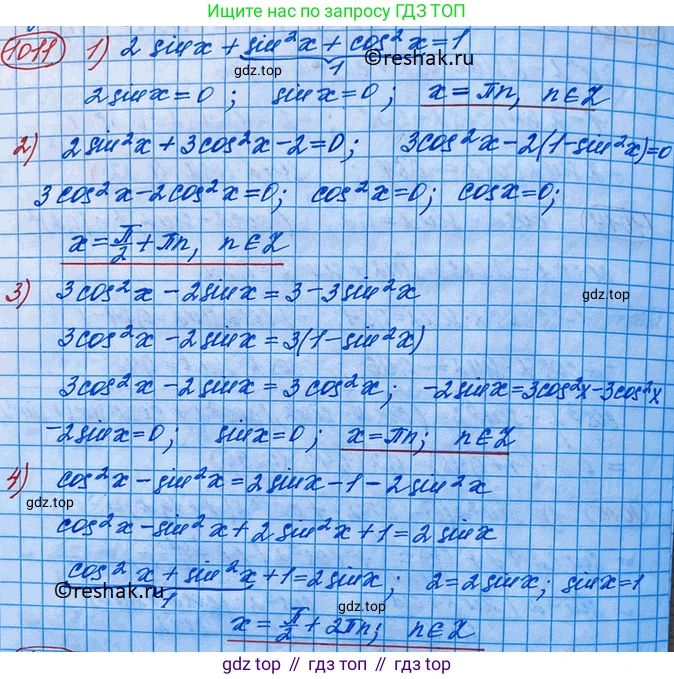 Ищите нас по запросу ГДЗ ТОП
1011 1) 2 sin x + sin²x + cos²x = 1
gdz.top 1 ©reshak.ru
2 sin x = 0; sin x = 0; x = πn, n ∈ Z
2) 2 sin²x + 3 cos²x - 2 = 0; 3 cos²x - 2(1 - sin²x) = 0
3 cos²x - 2 cos²x = 0; cos²x = 0; cos x = 0;
x = π/2 + πn, n ∈ Z
3) 3 cos²x - 2 sin x = 3 - 3 sin²x
gdz.top
3 cos²x - 2 sin x = 3(1 - sin²x)
3 cos²x - 2 sin x = 3 cos²x; -2 sin x = 3 cos²x - 3 cos²x
-2 sin x = 0; sin x = 0; x = πn; n ∈ Z
4) cos²x - sin²x = 2 sin x - 1 - 2 sin²x
gdz.top
cos²x - sin²x + 2 sin²x + 1 = 2 sin x
cos²x + sin²x + 1 = 2 sin x; 2 = 2 sin x; sin x = 1
©reshak.ru 1 gdz.top
x = π/2 + 2πn; n ∈ Z
gdz.top // гдз.топ // gdz.top